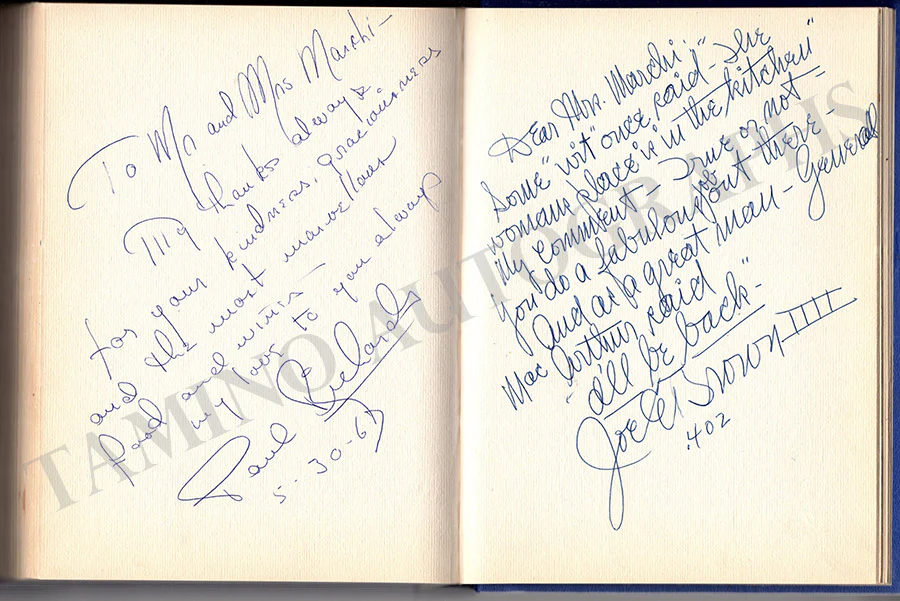 To Mr and Mrs Marchi -
My thanks always
for your kindness, graciousness
and the most marvellous
food and wines -
my love to you always
Paul Richards
5-30-67
Dear Mrs. Marchi:
Some "wit" once said - "The
womans place is in the kitchen"
My comment - True or not -
You do a fabulous job out there -
And as a great man - General
Mac Arthur said "
- I'll be back - "
Joe E Brown IIII
.402
TAMINO AUTOGRAPHS